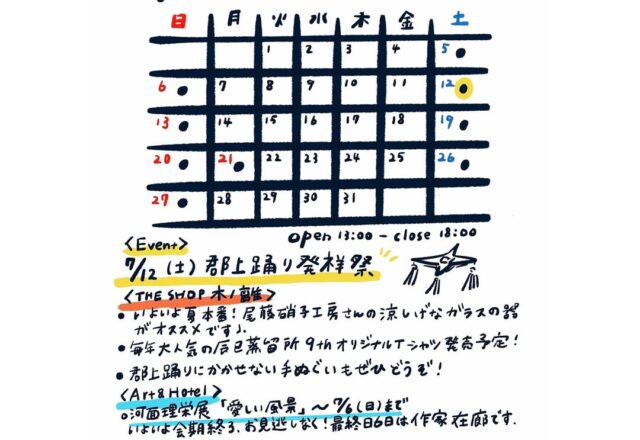 日 月 火 水 木 金 土
1 2 3 4 5
6 7 8 9 10 11 12
13 14 15 16 17 18 19
20 21 22 23 24 25 26
27 28 29 30 31
open 13:00 - close 18:00
<Event>
7/12 (土) 郡上踊り発祥祭
<THE SHOP 木ノ離>
• いよいよ夏本番！尾藤硝子工房さんの涼しげなガラスの器
がオススメです♪
• 毎年大人気の辰巳蒸留所 9th オリジナルTシャツ発売予定！
• 郡上踊りにかかせない手ぬぐいもぜひどうぞ！
<Art&Hotel>
○河面理栄展「愛しい風景」〜7/6(日)まで
いよいよ会期終る、お見逃しなく！最終日6日は作家在廊です.